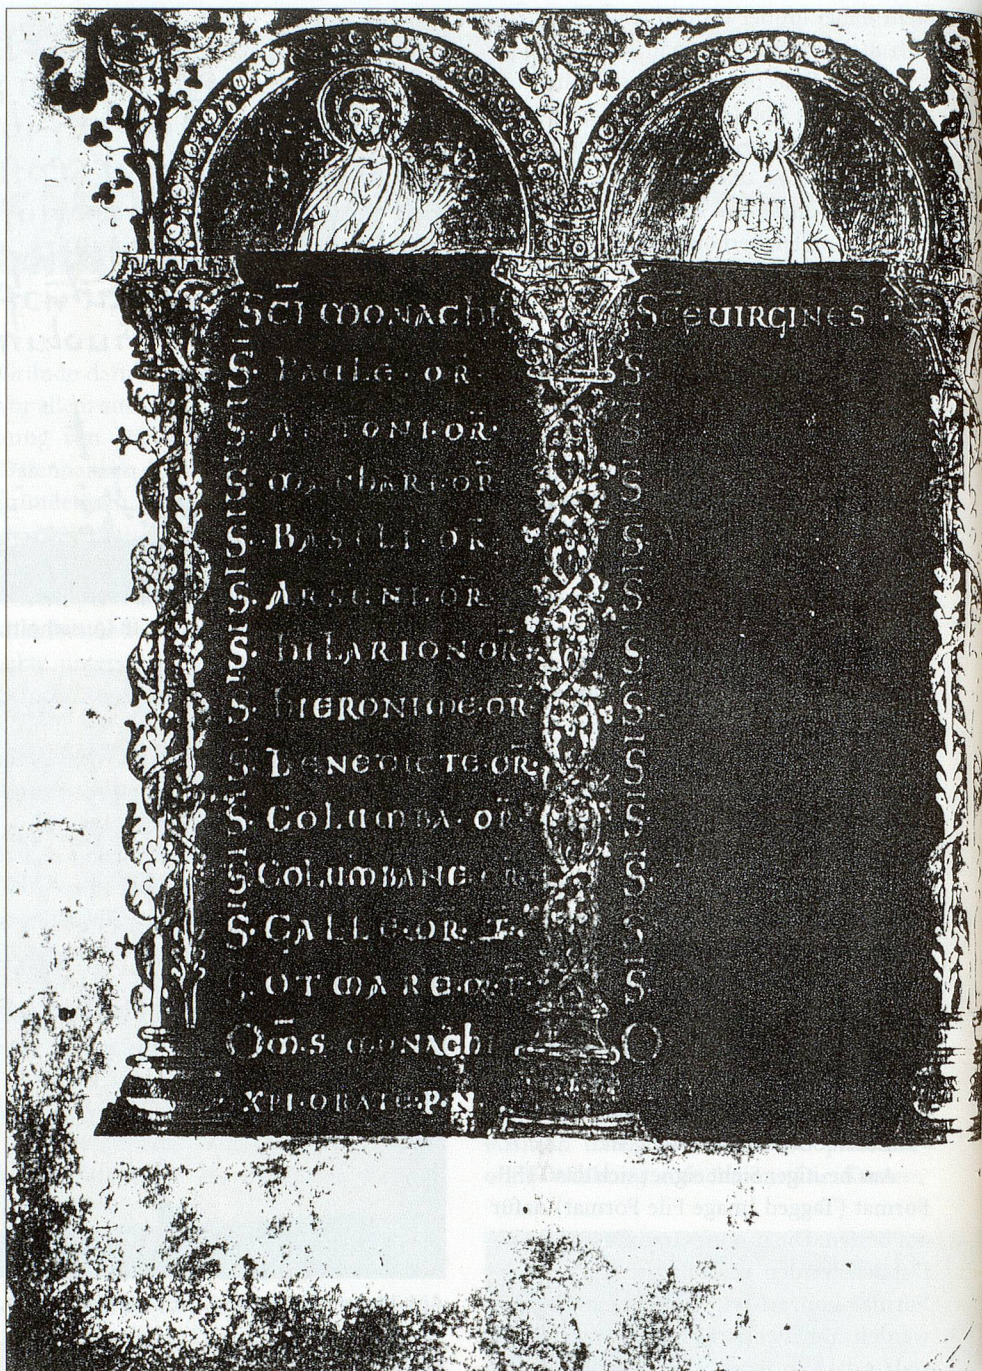 SC̄I MONAChI
S̄. PAULE. OR̄
S̄. ANTONI. OR̄.
S̄. MACHARI. OR̄
S̄. BASILI. OR̄
S̄. ARSENI. OR̄
S̄. hILARION OR̄.
S̄. hIERONIME. OR̄
S̄. BENEDICTE. OR̄.
S̄. COLUMBA. OR̄
S̄. COLUMBANE. OR̄
S̄. GALLE. OR̄.
OTMARE. OR̄
OM̄S MONAChI
XPI. ORATE. P. N.
SC̄E UIRGINES.
S̄.
S̄.
S̄.
S̄.
S̄.
S̄.
S̄.
S̄.
S̄.
S̄.
S̄.
S̄
O